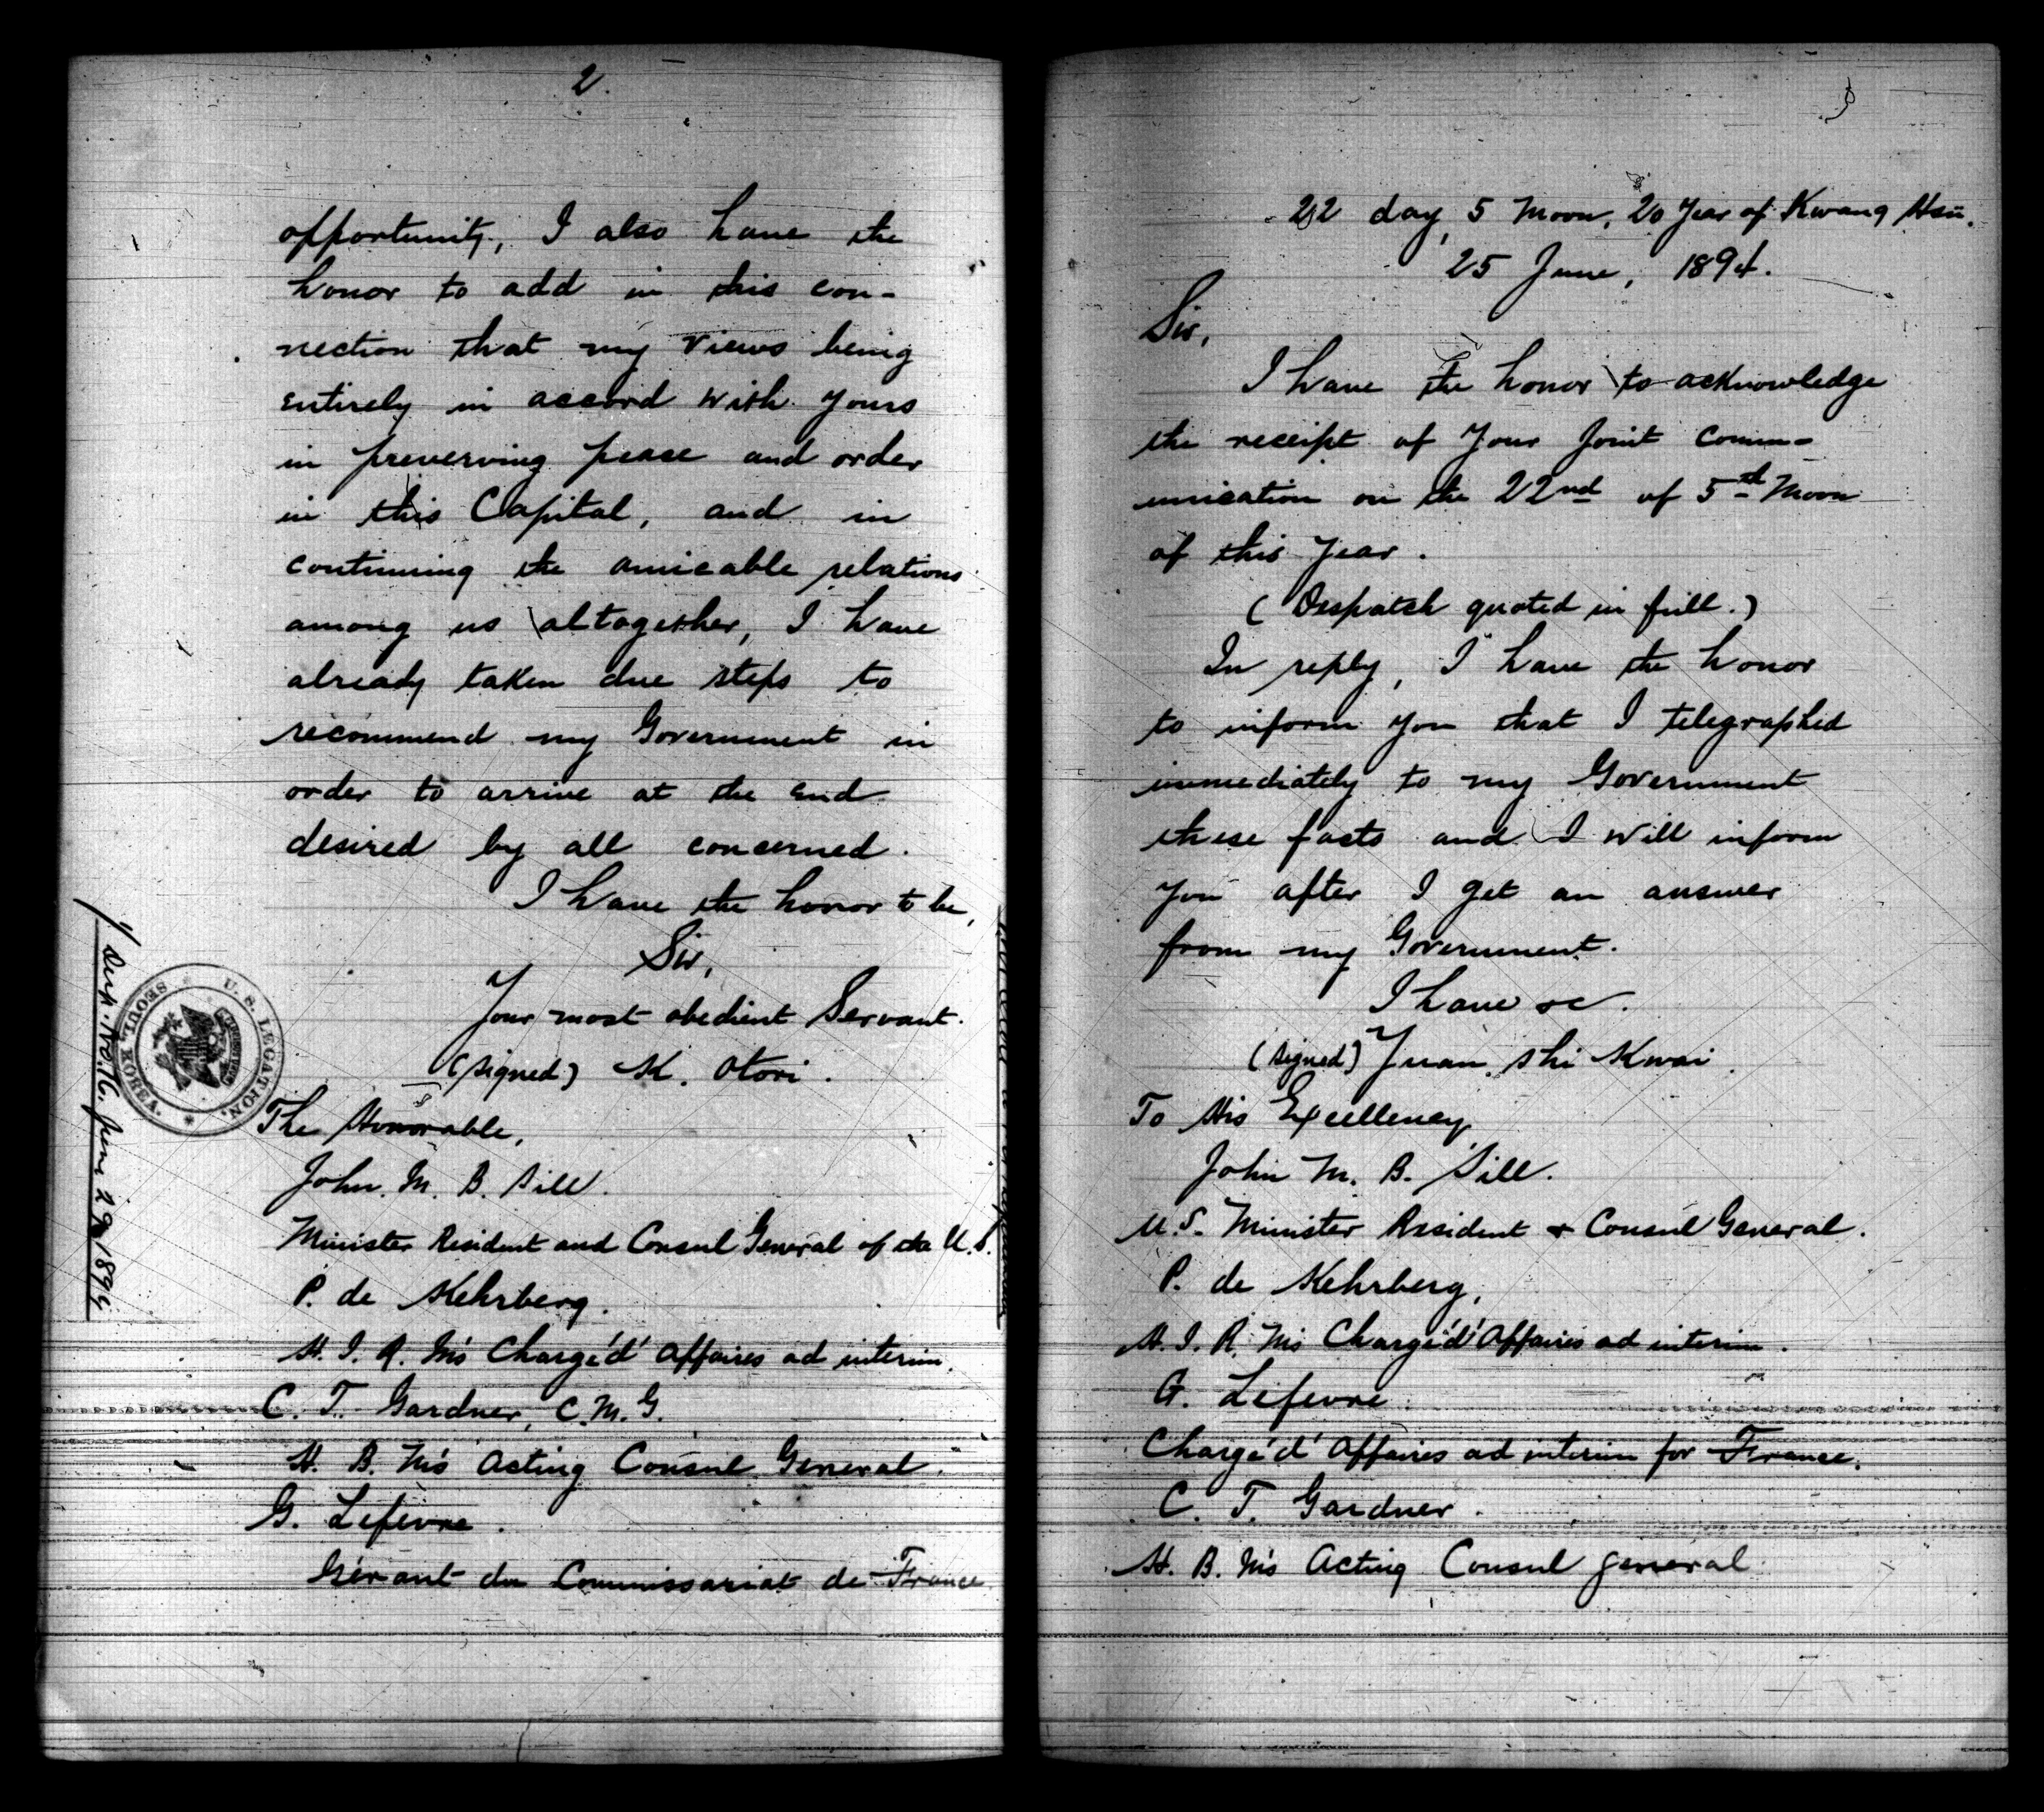 2.
opportunity, I also have the
honor to add in this con-
nection that my views being
entirely in accord with yours
in preverving peace and order
in this Capital, and in
continuing the amicable relations
among us altogether, I have
already taken due steps to
recommend my Government in
order to arrive at the end
desired by all concerned.
I have the honor to be,
Sir,
Your most obedient Servant.
(signed) K. Otori.
The Honorable,
John. M. B. Sill.
Minister Resident and Consul General of the U.S.
P. de Kehrberg.
H. I. R. M's Chargé d' Affaires ad interim.
C. T. Gardner, C.M.G.
H. B. M's Acting Consul General.
G. Lefevre.
Gérant du Commissariat de France
June 29 1894
U. S. LEGATION.
SEOUL, KOREA.
22 day, 5 Moon, 20 Year of Kwang Hsü.
25 June, 1894.
Sir,
I have the honor to acknowledge
the receipt of Your Joint Comm-
unication on the 22nd of 5th Moon
of this Year.
(Despatch quoted in full.)
In reply, I have the honor
to inform you that I telegraphed
immediately to my Government
these facts and I will inform
you after I get an answer
from my Government.
I have &c.
(signed) Yuan Shi Kwai.
To His Excellency
John M. B. Sill.
U.S. Minister Resident & Consul General.
P. de Kehrberg,
H. I. R. M's Chargé d' Affaires ad interim.
G. Lefevre.
Chargé d' Affaires ad interim for France.
C. T. Gardner.
H. B. M's Acting Consul general